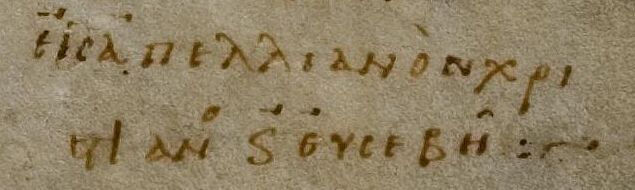 εἰς ἀπελλιανὸν χρι
στιανο ϗ εὐσεβῆ :~